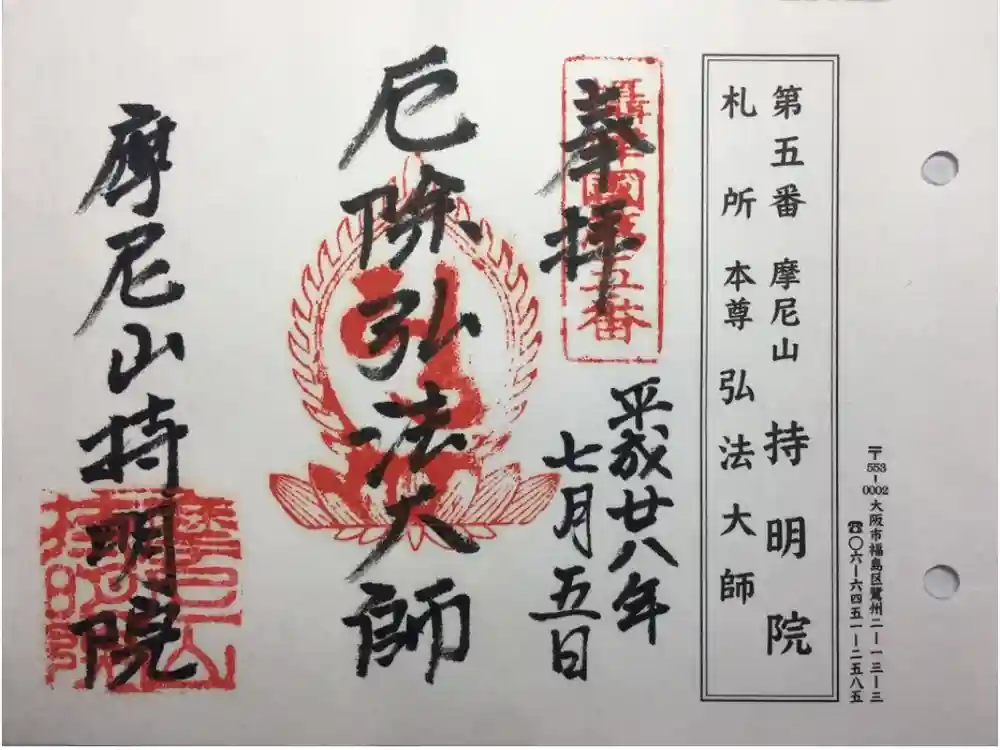 〒553-0002大阪市福島区鷺州二ー一三ー三
☎〇六ー六四五一ー二五八五
第五番 摩尼山 持明院
札所 本尊 弘法大師
攝津國第五番
奉拝
平成廿八年
七月五日
厄除弘法大師
摩尼山持明院
摩尼山
持明院